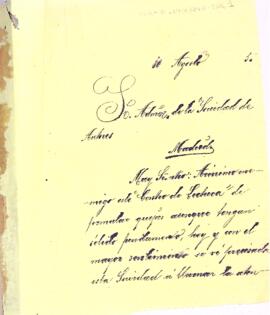 10 Agosto
Sr. Admor. de la "Sociedad de
Autores
Madrid
Muy Sr. ntro: Animo
migo este "Centro de Lectura" de
formular quejas aunque tengan
sólido fundamento, hoy y con el
mayor sentimiento se vé precisada
esta Sociedad á llamar la aten-